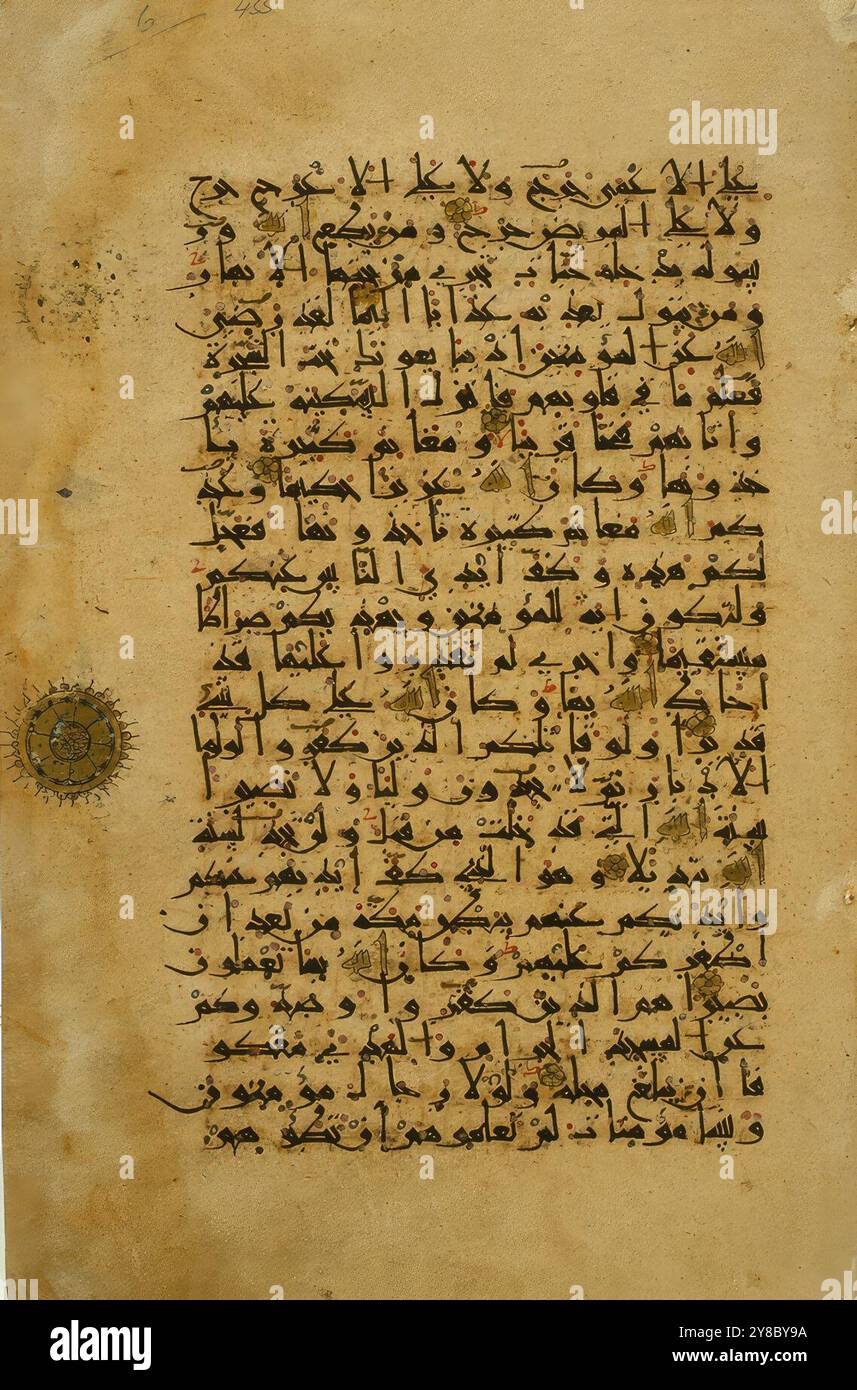 6 455
على الاعمى حرج ولا على الاعرج حرج
ولا على المريض حرج ومن يطع الله ور
سوله يدخله جنات تجري من تحتها الانهار
ومن يتول يعذبه عذابا اليما لقد رضي
الله عن المؤمنين اذ يبايعونك تحت الشجرة
فعلم ما في قلوبهم فانزل السكينة عليهم
واثابهم فتحا قريبا ومغانم كثيرة يا
خذونها وكان الله عزيزا حكيما وعد
كم الله مغانم كثيرة تاخذونها فعجل
لكم هذه وكف ايدي الناس عنكم
ولتكون اية للمؤمنين ويهديكم صراطا
مستقيما واخرى لم تقدروا عليها قد
احاط الله بها وكان الله على كل شيء
قديرا ولو قاتلكم الذين كفروا لولوا
الادبار ثم لا يجدون وليا ولا نصيرا
سنة الله التي قد خلت من قبل ولن تجد لسنة
الله تبديلا وهو الذي كف ايديهم عنكم
وايديكم عنهم ببطن مكة من بعد ان
اظفركم عليهم وكان الله بما تعملون
بصيرا هم الذين كفروا وصدوكم
عن المسجد الحرام والهدي معكو
فا ان يبلغ محله ولولا رجال مؤمنون
ونساء مؤمنات لم تعلموهم ان تطؤهم
alamy
Image ID: 2Y8BY9A
www.alamy.com